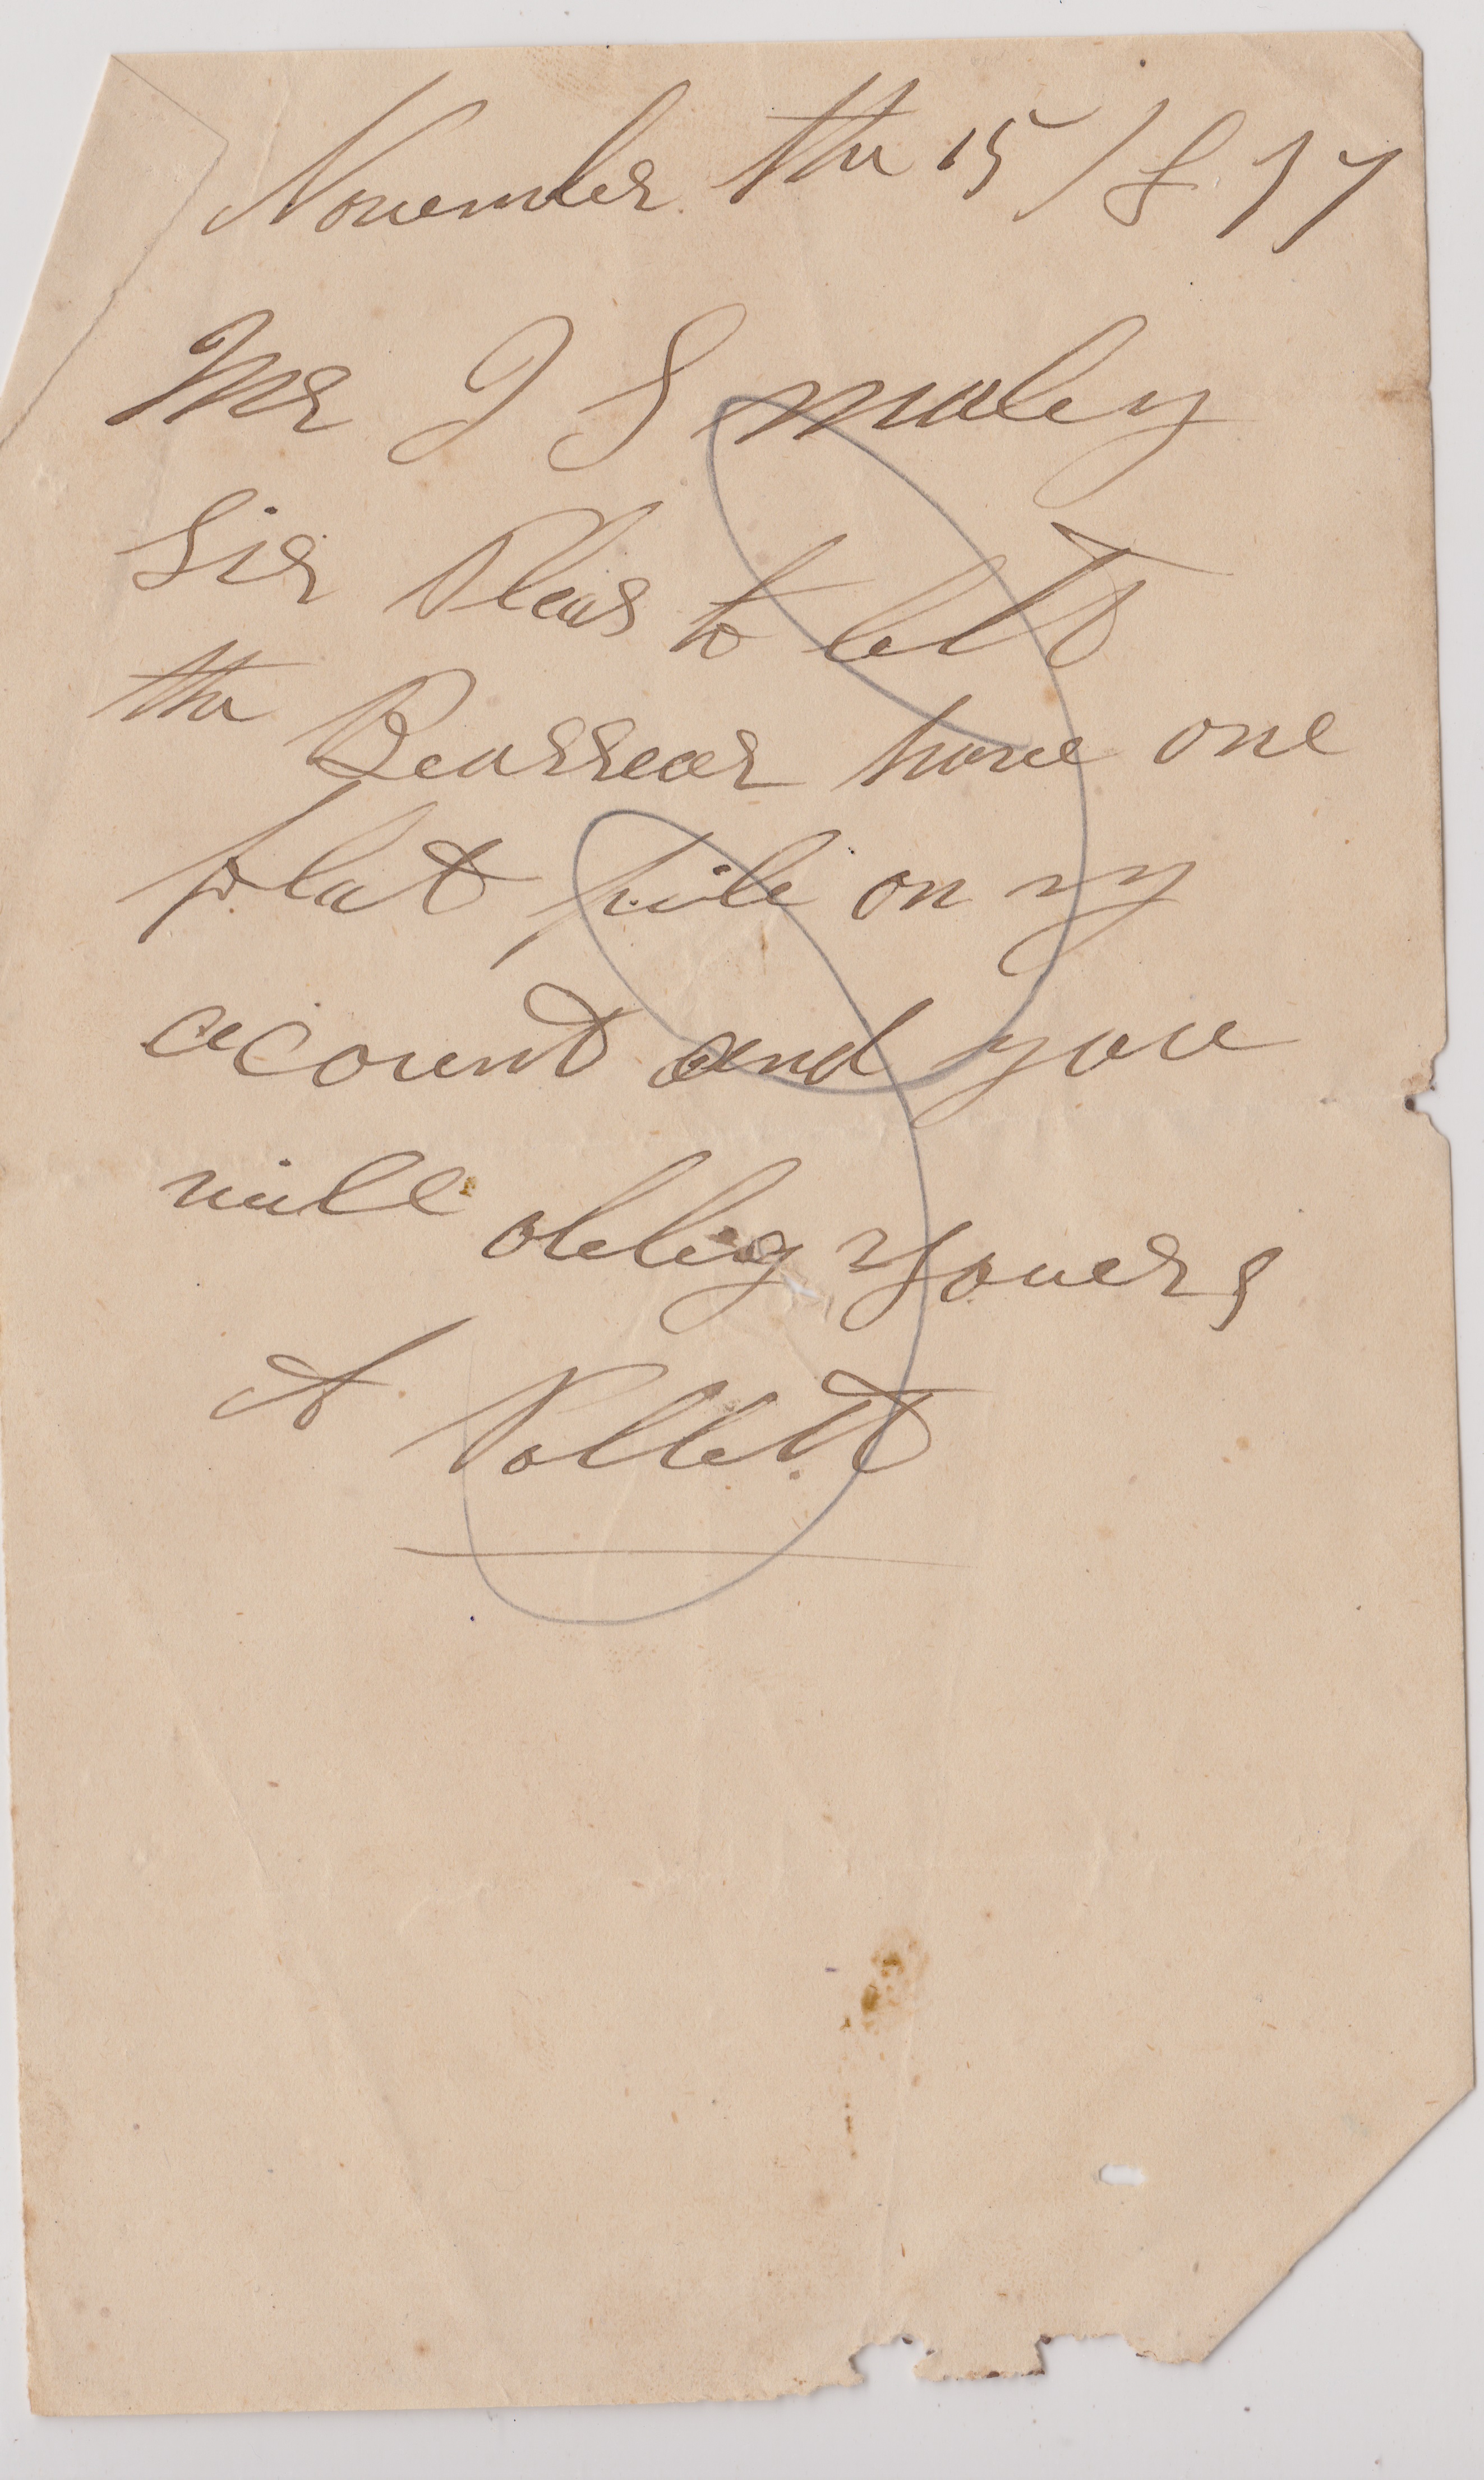 November the 15 / 8 77
Mr J Smaley
Sir Pleas to lett
the Bearrear have one
plat file on my
acount and you
will obblig youers
A Pollett